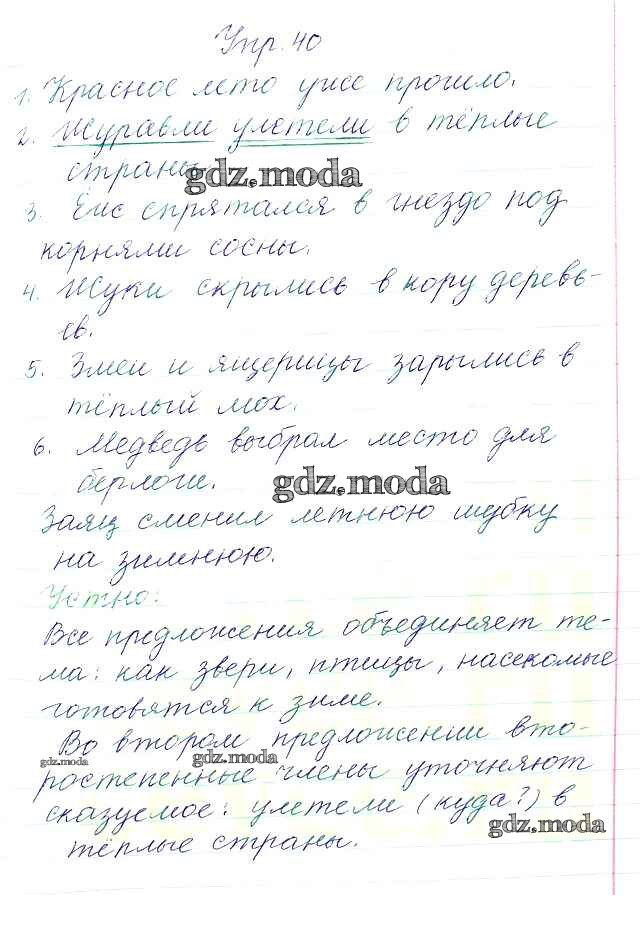 Упр. 40
1. Красное лето уже прошло.
2. Журавли улетели в тёплые
страны gdz.moda
3. Ёж спрятался в гнездо под
корнями сосны.
4. Жуки скрылись в кору деревь-
ев.
5. Змеи и ящерицы зарылись в
тёплый мох.
6. Медведь выбрал место для
берлоги. gdz.moda
Заяц сменил летнюю шубку
на зимнюю.
Устно:
Все предложения объединяет те-
ма: как звери, птицы, насекомые
готовятся к зиме.
Во втором предложении вто-
gdz.moda gdz.moda
ростепенные члены уточняют
сказуемое: улетели (куда?) в
gdz.moda
тёплые страны.